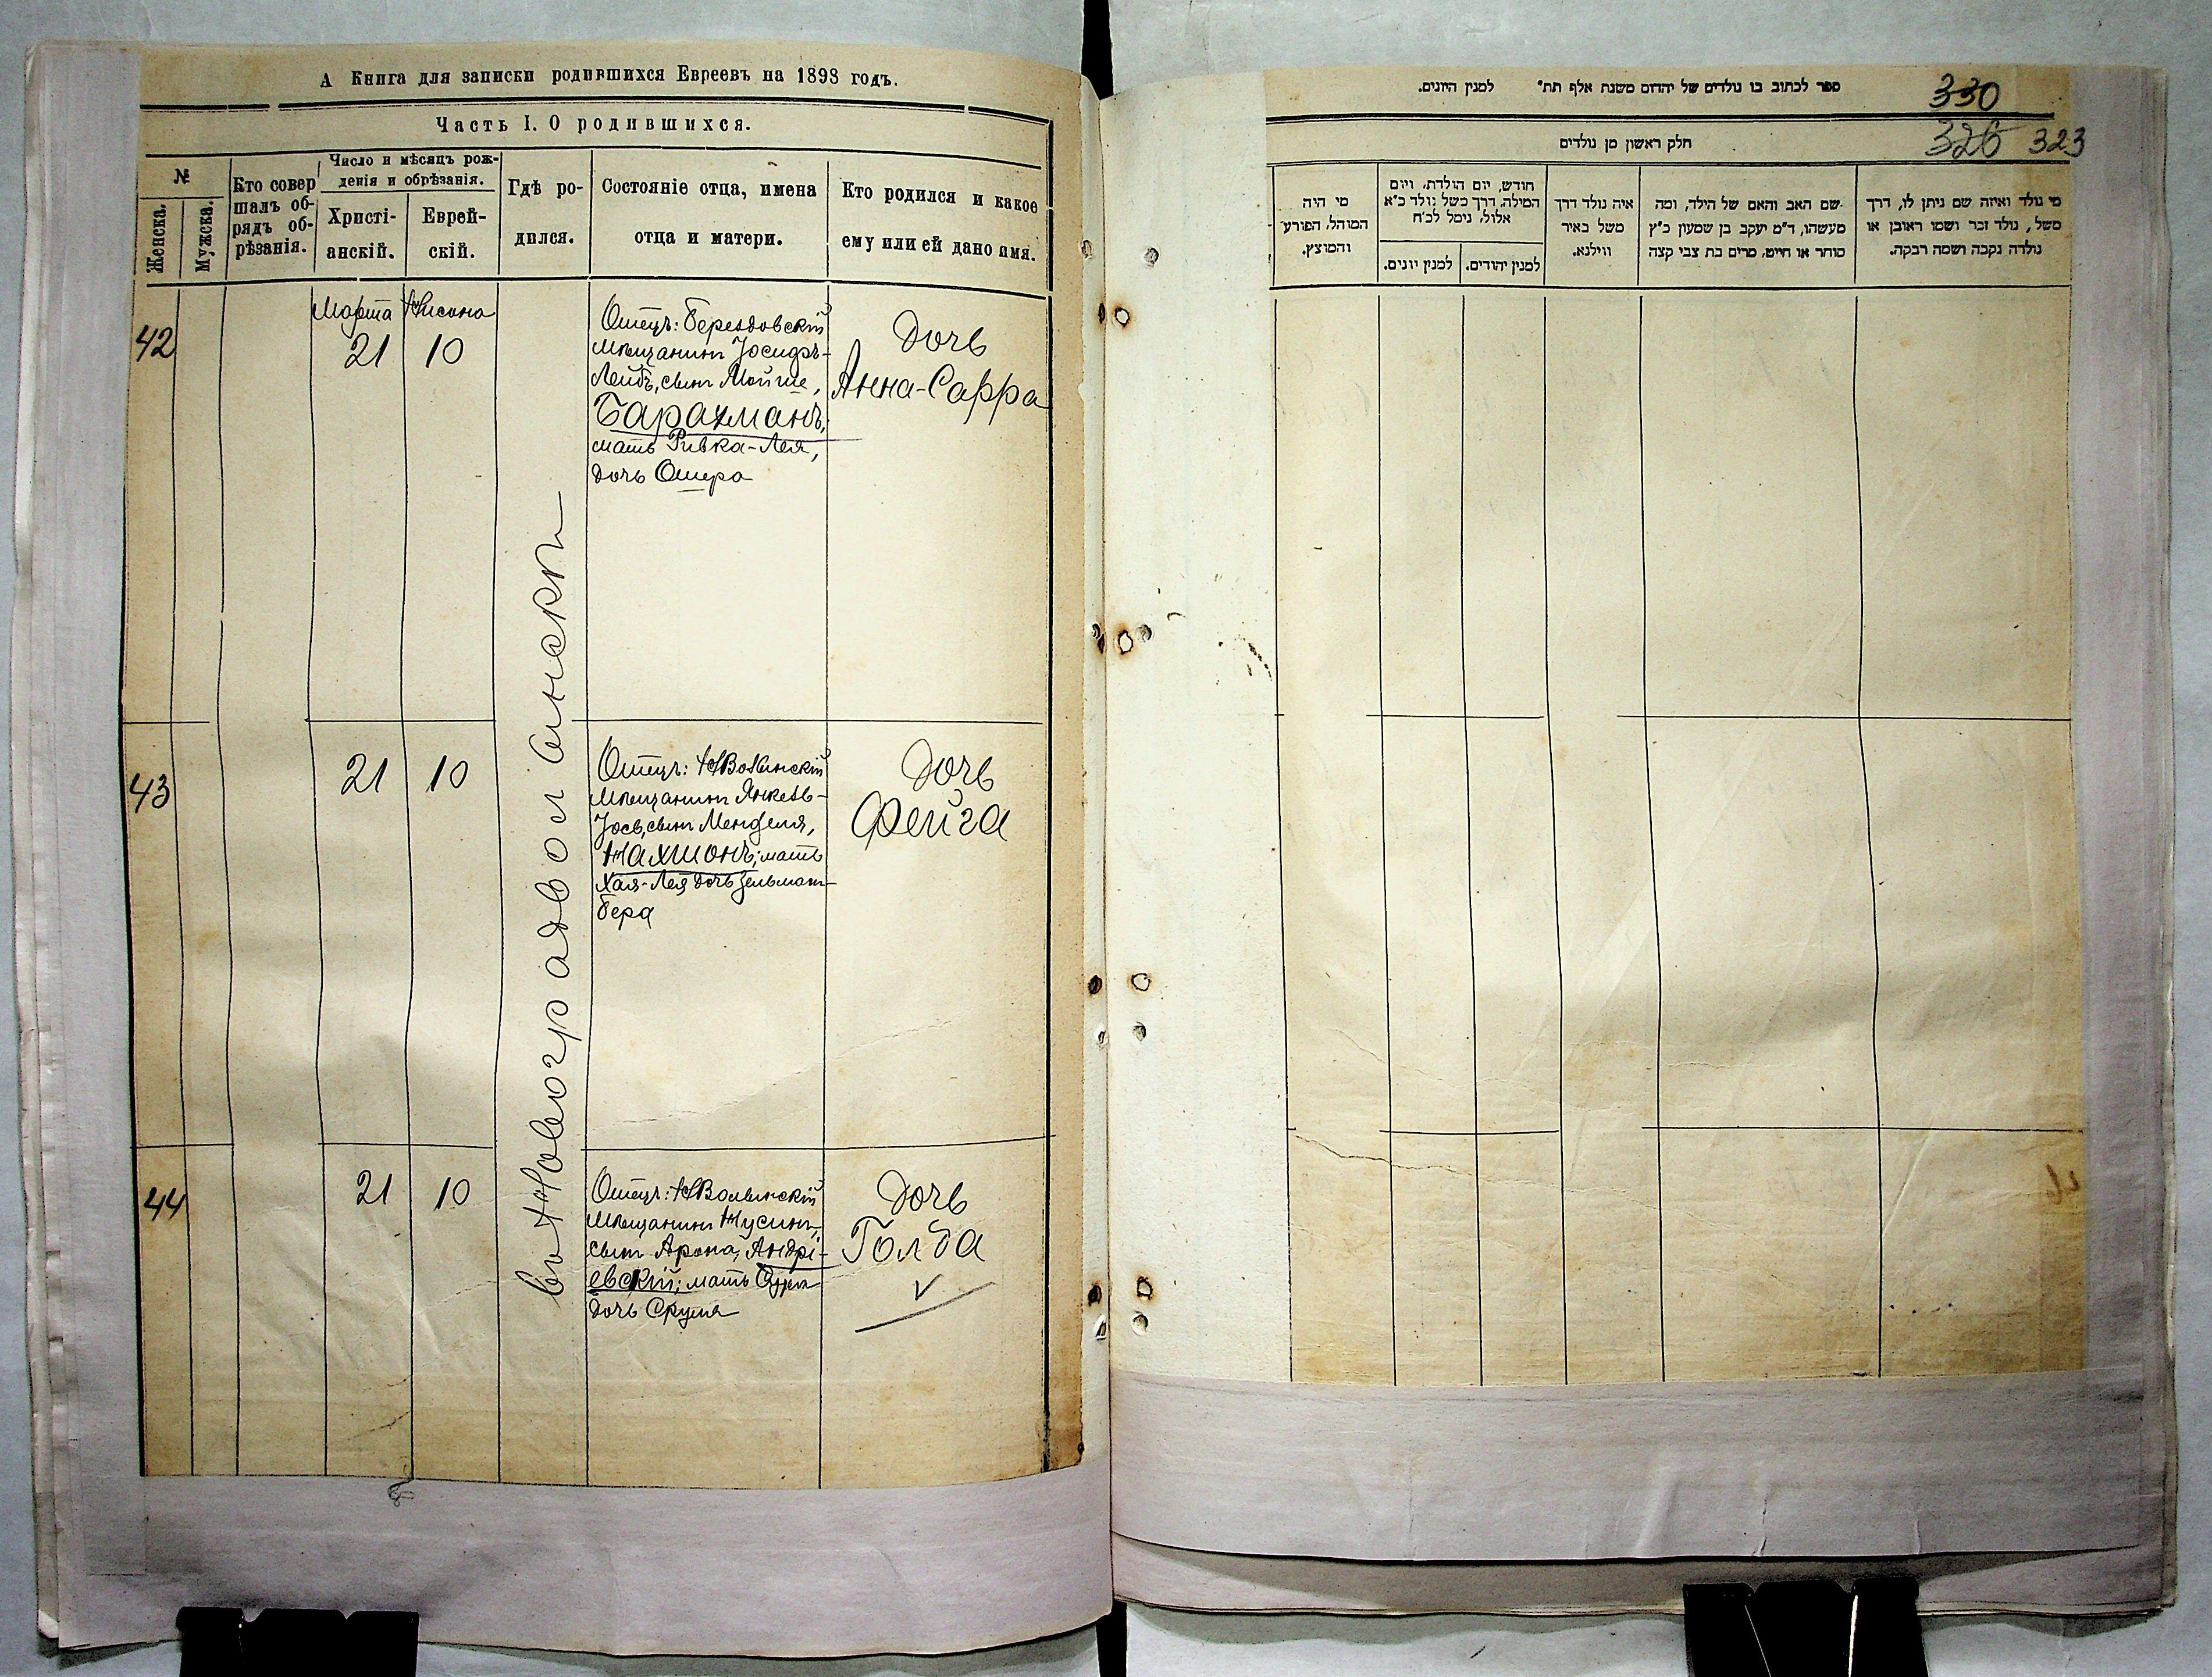 А Книга для записки родившихся Евреевъ на 1898 годъ.
Часть I. О родившихся.
№
Женска.
Мужска.
Кто совер
шалъ об-
рядъ об-
рѣзанія.
Число и мѣсяцъ рож-
денія и обрѣзанія.
Христі-
анскій.
Еврей-
скій.
Гдѣ ро-
дился.
Состояніе отца, имена
отца и матери.
Кто родился и какое
ему или ей дано имя.
42
Марта
21
Нисона
10
Отецъ: Берездовскій
мѣщанинъ Іосифъ-
Лейбъ, сынъ Мойше,
Барахманъ,
мать Ривка-Лея,
дочь Ошера
Дочь
Анна-Сарра
въ Новоградволынскѣ
43
21
10
Отецъ: НВолынскій
мѣщанинъ Янкель-
Іось, сынъ Менделя,
Нахшонъ; мать
Хая-Лея дочь Зельман-
бера
Дочь
Фейга
44
21
10
Отецъ: НВолынскій
мѣщанинъ Нусинъ,
сынъ Арона, Андрі-
евскій; мать
дочь Срумя
Дочь
Голда
ספר לכתוב בו נולדים של יהדום משנת אלף תת" למנין היונים.
330
חלק ראשון מן נולדים
326 323
מי נולד ואיזה שם ניתן לו, דרך
משל, נולד זכר ושמו ראובן או
נולדה נקבה ושמה רבקה.
שם האב והאם של הילד, ומה
מעשהו, ד"מ יעקב בן שמעון כ"ץ
סוחר או חייט, מרים בת צבי קצה
איה נולד דרך
משל באיר
ווילנא.
חודש, יום הולדת, ויום
המילה, דרך משל נולד כ"א
אלול, נימל לכ"ח
למנין יהודים.
למנין יונים.
מי היה
המוהל, הפורע
והמוצץ.